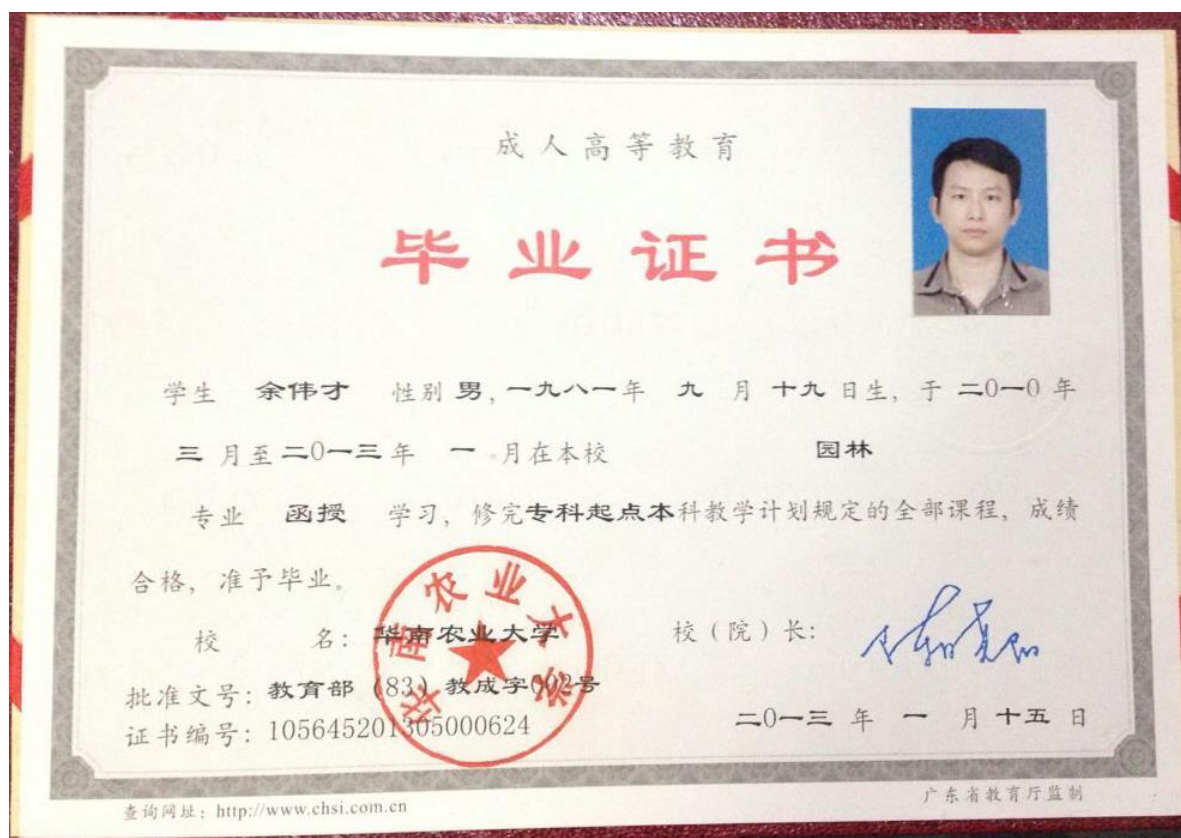 成人高等教育
毕业证书
学生 余伟才 性别 男, 一九八一年 九 月 十九 日生, 于 二0一0 年
三 月至 二0一三 年 一 月在本校 园林
专业 函授 学习, 修完专科起点本科教学计划规定的全部课程, 成绩
合格, 准予毕业。
校 名: 华南农业大学 校(院)长:
批准文号: 教育部 (83) 教成字002号
证书编号: 105645201305000624
二0一三 年 一 月 十五 日
华南农业大学
查询网址: http://www.chsi.com.cn 广东省教育厅监制